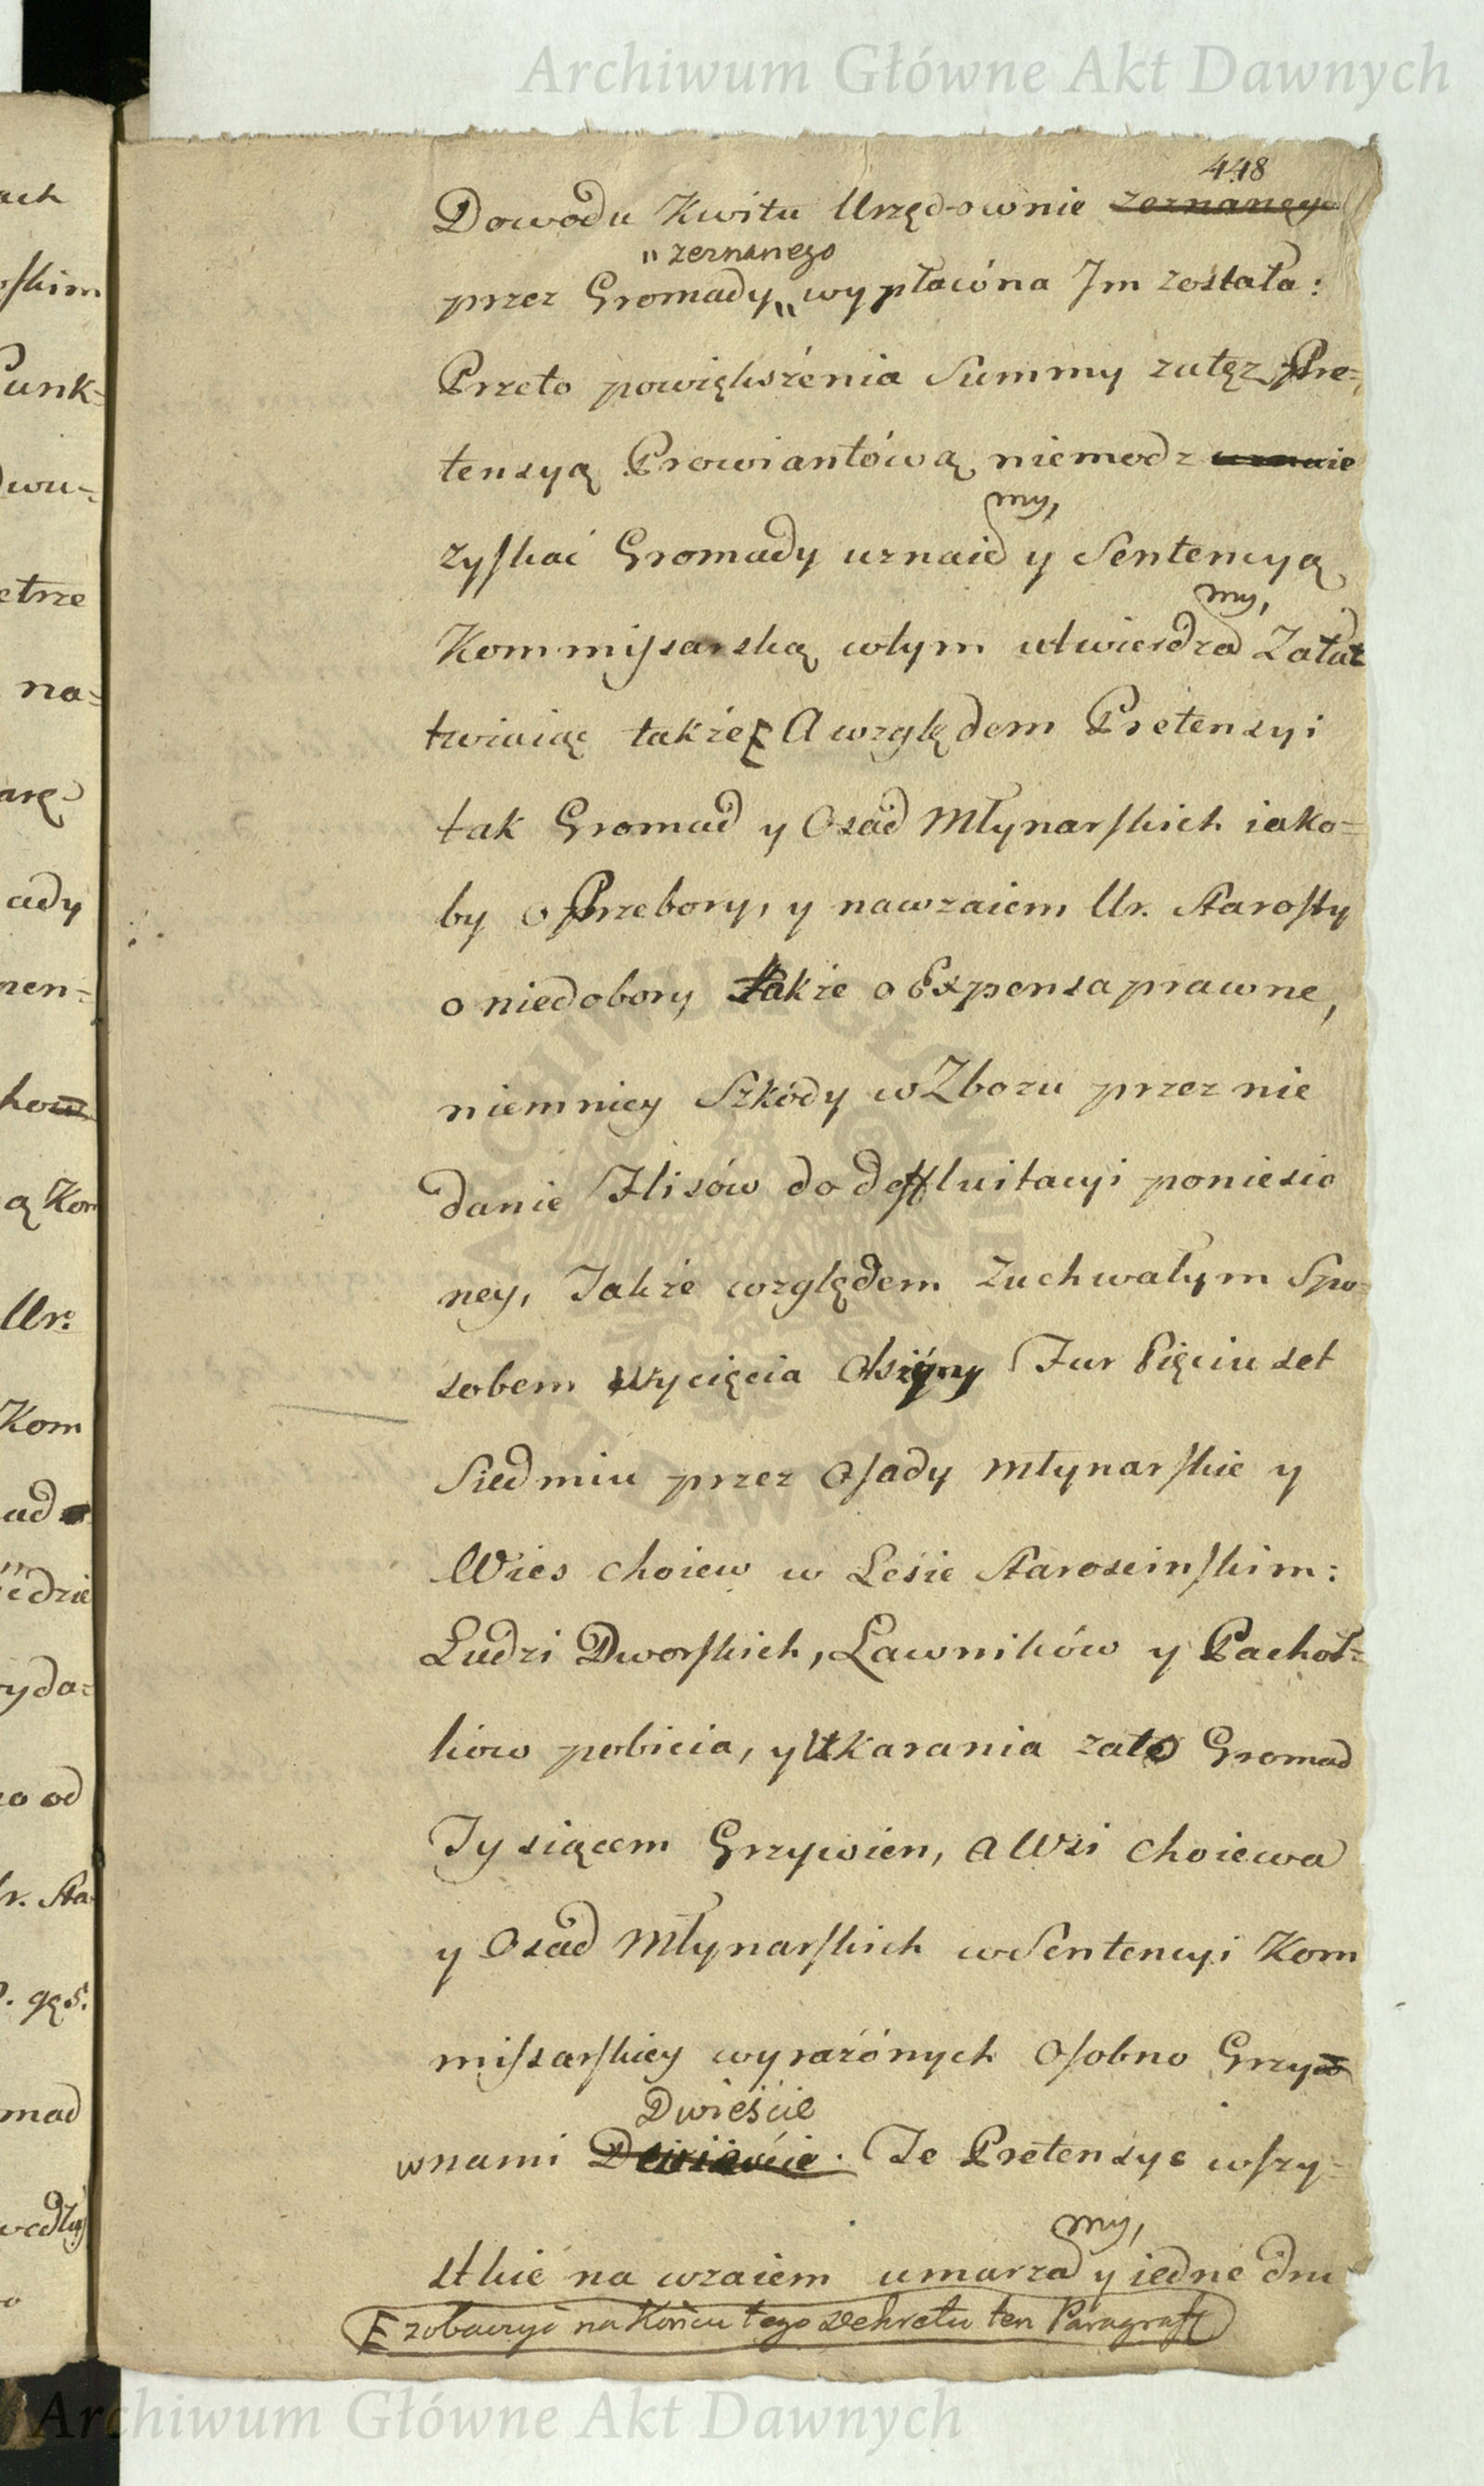 Archiwum Główne Akt Dawnych
448
Dowodu Kwitu Urzędownie zeznanego
„ zeznanego
przez Gromady „ wypłacóna Jm została:
Przeto powiększénia Summy zatęz Pre-
tensyą Prowiantówą niemodz uznaie
my,
zyskać Gromady uznaie y Sentencyą
my,
Kommissarską wtym utwierdza Załat
twiaiąc także A względem Pretensyi
tak Gromad y Osad Młynarskich iako-
by o Przebory, y nawzaiem Ur. Starosty
o niedobory także o Expensa prawne,
niemniey Szkody w Zbozu przez nie
danie Flisów do deffluitacyi poniesio
ney, Także względem Zuchwałym Spo-
sobem wycięcia Olszyny Fur Pięciuset
Siedmiu przez Osady Młynarskie y
Wies Choiew w Lesie Starościnskim:
Ludzi Dworskich, Ławników y Pachoł-
ków pobicia, y Ukarania zato Gromad
Tysiącem Grzywien, a Wsi Choiewa
y Osad Młynarskich w Sentencyi Kom
missarskiey wyrażónych Osobno Grzyw
Dwieście
wnami Dwieście. Te Pretensye wszy-
my,
stkie na wzaiem umarza y iedne dru
E zobaczyć na Końcu tego Dekretu ten Paragraff
Archiwum Główne Akt Dawnych